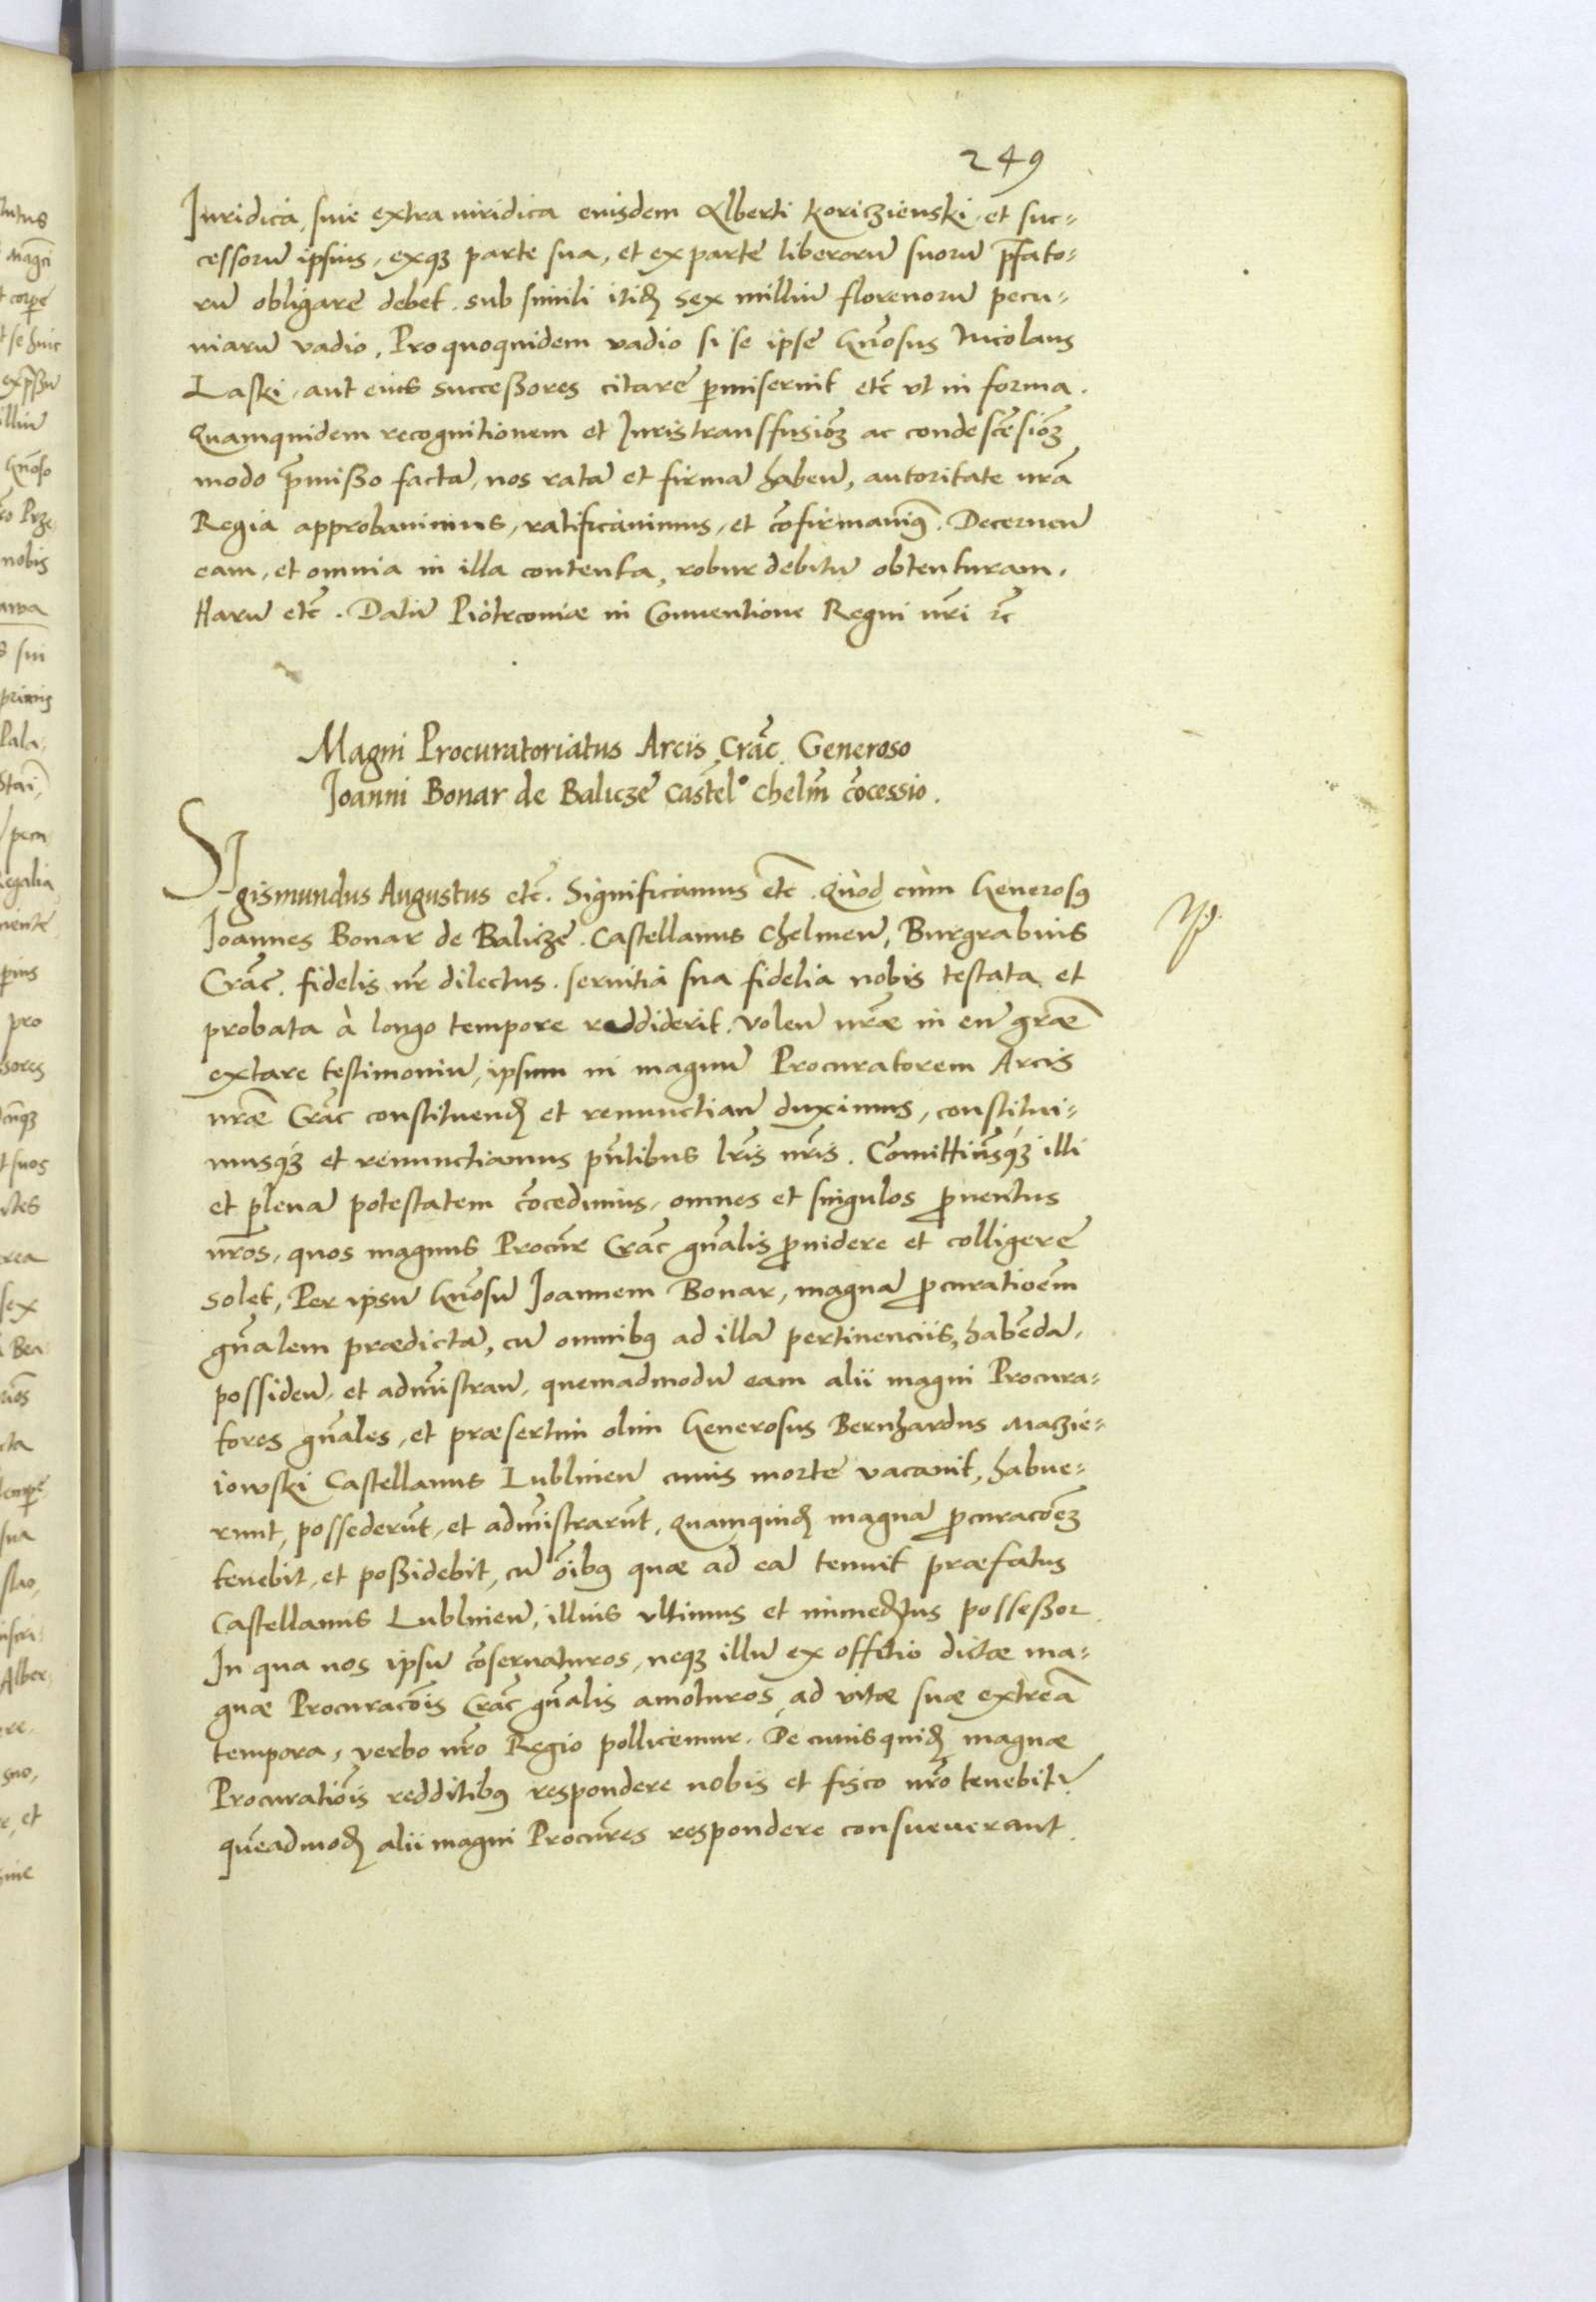 249
Juridica, siue extraiuridica eiusdem Alberti Koriczienski, et suc-
cessorū ipsius, exq3 parte sua, et ex parte liberorū suorū p̄fato-
rū obligare debet. sub simili itid̄ sex milliū florenorū pecu-
niarū vadio. Pro quoquidem vadio si se ipse Gn̄osus Nicolaus
Laski, aut eius successores citare pmiserint etc̄ vt in forma.
Quamquidem recognitionem et Juris transffusiōɜ ac condescēsiōɜ
modo p̄misso factā, nos ratā et firmā habeñ, autoritate nrā
Regia approbauimus, ratificauimus, et cōfirmauimꝰ. Decerneñ
eam, et omnia in illa contenta, robur debitū obtenturam.
Harū etc̄. Datū Piotrcoviæ in Conuentione Regni nrī etc̄
Magni Procuratoriatus Arcis Crac̄. Generoso
Joanni Bonar de Balicze Castelº Chelm̄ cōcessio.
SIgismundus Augustus etc̄. Significamus etc̄. Quod cùm Generosꝰ
Joannes Bonar de Balicze. Castellanus Chelmeñ, Burgrabius
Crac̄. fidelis nr̄ dilectus. seruitia sua fidelia nobis testata et
probata à longo tempore reddiderit. Voleñ nrǣ in eū grǣ
extare testimoniū, ipsum in magnū Procuratorem Arcis
nrǣ Crac̄ constituend̄ et renunctiañ duximus, constitui-
musq3 et renunctiamus pn̄tibus lrīs nrīs. Comittimusq3 illi
et plenā potestatem cōcedimus, omnes et singulos prouentus
nrōs, quos magnus Procur̄ Crac̄ gn̄alis prouidere et colligere
solet, Per ipsū Gn̄osū Joannem Bonar, magnā pcuratioēm
gn̄alem prædictā, cū omnibꝰ ad illā pertinenciis, habēdā,
possideñ, et admīstrañ, quemadmodū eam alii magni Procura-
tores gn̄ales, et præsertim olim Generosus Bernhardus Maczie-
iowski Castellanus Lublineñ cuius morte vacauit, habue-
runt, possederūt, et admīstrarūt, Quamquid̄ magnā pcuracōēɜ
tenebit, et possidebit, cū oībꝰ quæ ad eā tenuit præfatus
Castellanus Lublineñ, illius vltimus et immed̄tus possessor.
In qua nos ipsū cōseruaturos, neq3 illū ex offitio dictæ ma-
gnæ Procuracōis Crac̄ gn̄alis amoturos, ad vitæ suæ extrēa
tempora, verbo nrō Regio pollicemur. De cuiusquid̄ magnæ
Procuratiōis redditibꝰ respondere nobis et fisco nrō tenebitr
quēadmod̄ alii magni Procur̄es respondere consueuerant.